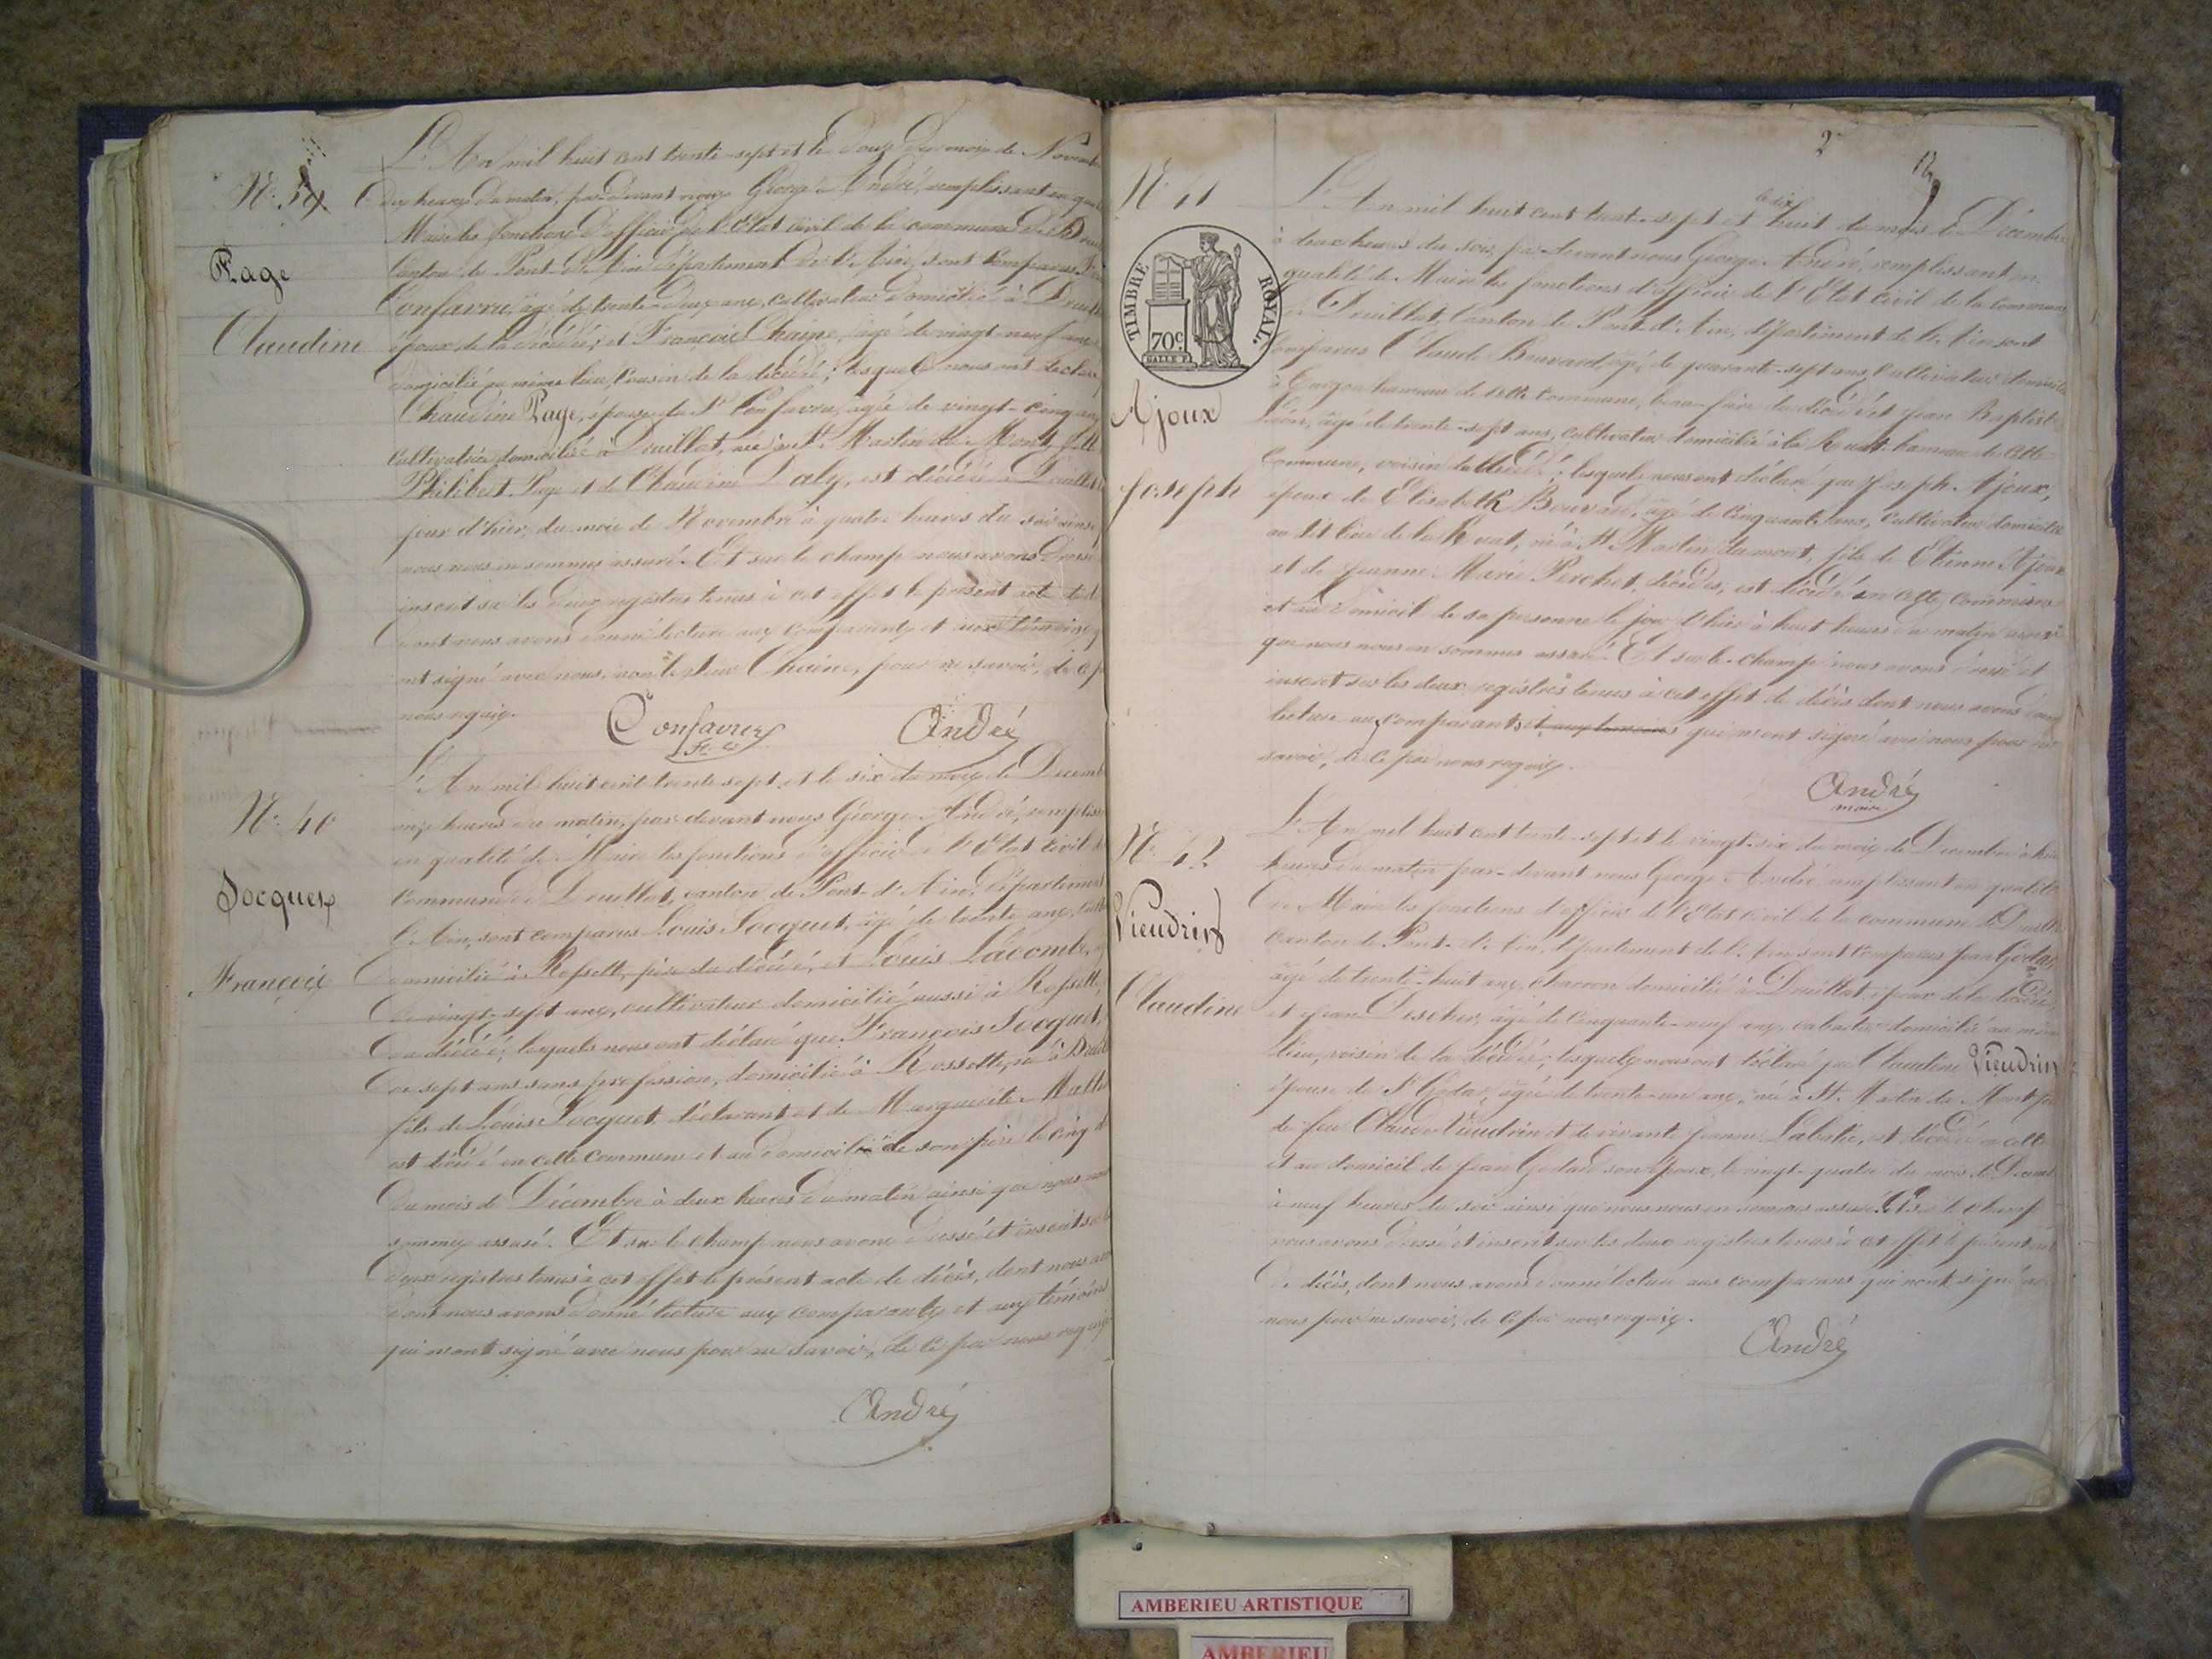 L'An mil huit cent trente-sept et le douze du mois de Novembre
N.° 39.
dix heures du matin, par devant nous George André, remplissant en
Maire les fonctions d'officier de l'Etat civil de la commune de
Page
Canton de Pont d'Ain département de l'Ain, sont comparus
Confavreux, agé de trente-deux ans, cultivateur domicilié à Druillat
Claudine
époux de la décédée; et François Chaine, agé de vingt-neuf ans
domicilié au même lieu, cousin de la décédée; lesquels nous ont déclaré
Claudine Page, épouse du Sr Confavreux, agée de vingt-cinq ans
cultivatrice domiciliée à Druillat, née à St. Martin du Mont, fille
Philibert Page et de Claudine Laty, est décédée à Druillat
jour d'hier, du mois de Novembre à quatre heures du soir ainsi
nous nous en sommes assuré. Et sur le champ nous avons dressé
inscrit sur les deux registres tenus à cet effet le présent acte
dont nous avons donné lecture aux comparants et aux témoins
ont signé avec nous, non le Sieur Chaine, pour ne savoir, de ce
nous requis.
Confavreux André
L'An mil huit cent trente sept et le six du mois de Décembre
N.° 40
onze heures du matin, par devant nous George André, remplissant
en qualité de Maire les fonctions d'officier de l'Etat civil de
Socquet
commune de Druillat, canton de Pont-d'Ain, Département
l'Ain, sont comparus Louis Socquet, agé de trente ans,
François
domicilié à Rossette, père du décédé, et Louis Lacombe,
de vingt-sept ans, cultivateur domicilié aussi à Rossette,
du décédé; lesquels nous ont déclaré que François Socquet,
de sept ans sans profession, domicilié à Rossette, né à
fils de Louis Socquet, déclarant et de Marguerite
est décédé en cette commune et au domicile de son père le cinq
du mois de Décembre à deux heures du matin ainsi que nous nous
sommes assuré. Et sur le champ nous avons dressé et inscrit sur
deux registres tenus à cet effet le présent acte de décès, dont nous
dont nous avons donné lecture aux comparants et aux témoins
qui n'ont signé avec nous pour ne savoir, de ce par nous requis
André
2
N.° 41
L'An mil huit cent trente-sept et le dix huit du mois de Décembre
à deux heures du soir, par-devant nous George André, remplissant en
qualité de Maire les fonctions d'officier de l'Etat civil de la commune
TIMBRE ROYAL.
70c.
de Druillat, Canton de Pont-d'Ain, département de l'Ain sont
comparus Claude Bouvard, agé de quarante-sept ans cultivateur domicilié
Ajoux
hameau de cette commune, beau-frère du décédé et Jean Baptiste
agé de trente-sept ans, cultivateur domicilié à la Ruat hameau de cette
commune, voisin du décédé; lesquels nous ont déclaré que Joseph Ajoux,
Joseph
époux de Elisabeth Bouvard, agé de cinquante ans, cultivateur domicilié
au dit lieu de la Ruat, né à St Martin du mont, fils de Etienne Ajoux
et de Jeanne Marie Perchet, décédés, est décédé en cette commune
et au domicile de sa personne le jour d'hier à huit heures du matin ainsi
que nous nous en sommes assuré. Et sur le-champ nous avons dressé et
inscrit sur les deux registres tenus à cet effet de décès dont nous avons donné
lecture aux comparants et aux témoins qui n'ont signé avec nous pour ne
savoir, de ce par nous requis.
André
maire
L'An mil huit cent trente-sept et le vingt-six du mois de Décembre à
N.° 42
heures du matin par-devant nous George André remplissant en qualité
de Maire les fonctions d'officier de l'Etat civil de la commune de Druillat
Vieudrin
canton de Pont-d'Ain, département de l'Ain sont comparus Jean Godard
agé de trente-huit ans, charron domicilié à Druillat époux de la décédée,
Claudine
et Jean Descher, agé de cinquante-neuf ans, domicilié au même
lieu, voisin de la décédée; lesquels nous ont déclaré que Claudine Vieudrin
épouse de Sr Godard, agée de trente-un ans, née à St. Martin du Mont
de feu Claude Vieudrin et de vivante Jeanne Labatie, est décédée en cette
et au domicile de Jean Godard son époux, le vingt-quatre du mois de Décembre
à neuf heures du soir ainsi que nous nous en sommes assuré. Et sur le champ
nous avons dressé et inscrit sur les deux registres tenus à cet effet le présent acte
de décès, dont nous avons donné lecture aux comparans qui n'ont signé avec
nous pour ne savoir, de ce par nous requis.
André
AMBERIEU ARTISTIQUE
AMBERIEU